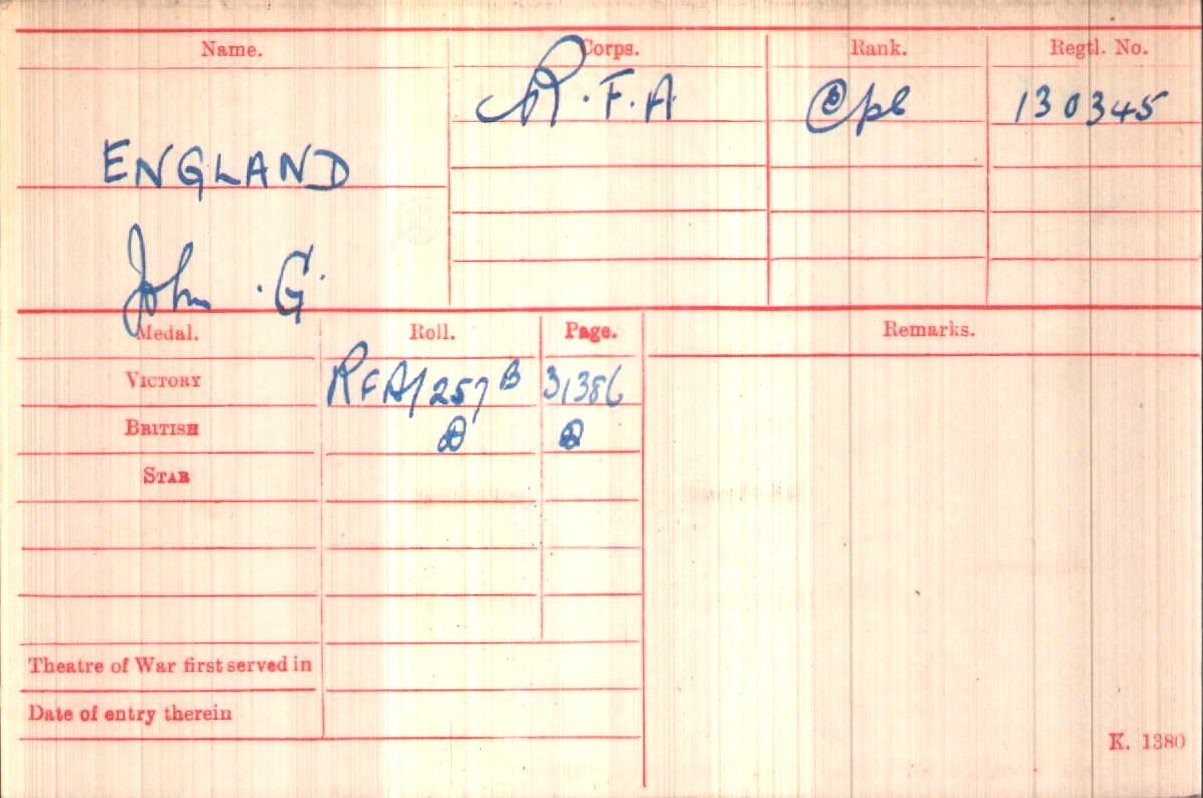 Name. Corps. Rank. Regtl. No.
R.F.A. Cpl 130345
ENGLAND
John .G.
Medal. Roll. Page. Remarks.
VICTORY RFA/257 B 31386
BRITISH
STAR
Theatre of War first served in
Date of entry therein
K. 1380